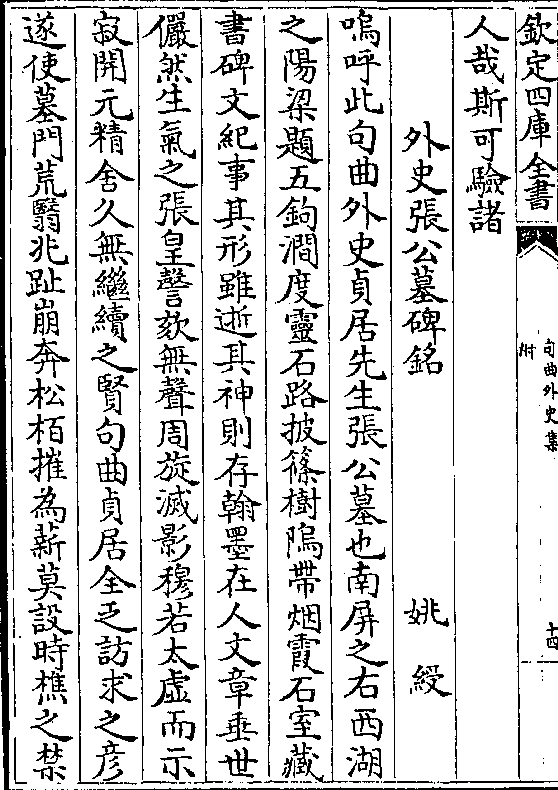 欽定四庫全書
句曲外史集
附
十四
人哉斯可驗諸
外史張公墓碑銘 姚綬
嗚呼此句曲外史貞居先生張公墓也南屏之右西湖
之陽梁題五鉤澗度靈石路披篠樹隝帶烟霞石室藏
書碑文紀事其形雖逝其神則存翰墨在人文章垂世
儼然生氣之張皇謦欬無聲周旋滅影穆若太虚而示
寂開元精舍久無繼續之賢句曲貞居全乏訪求之彦
遂使墓門荒翳兆趾崩奔松栢摧為薪莫設時樵之禁